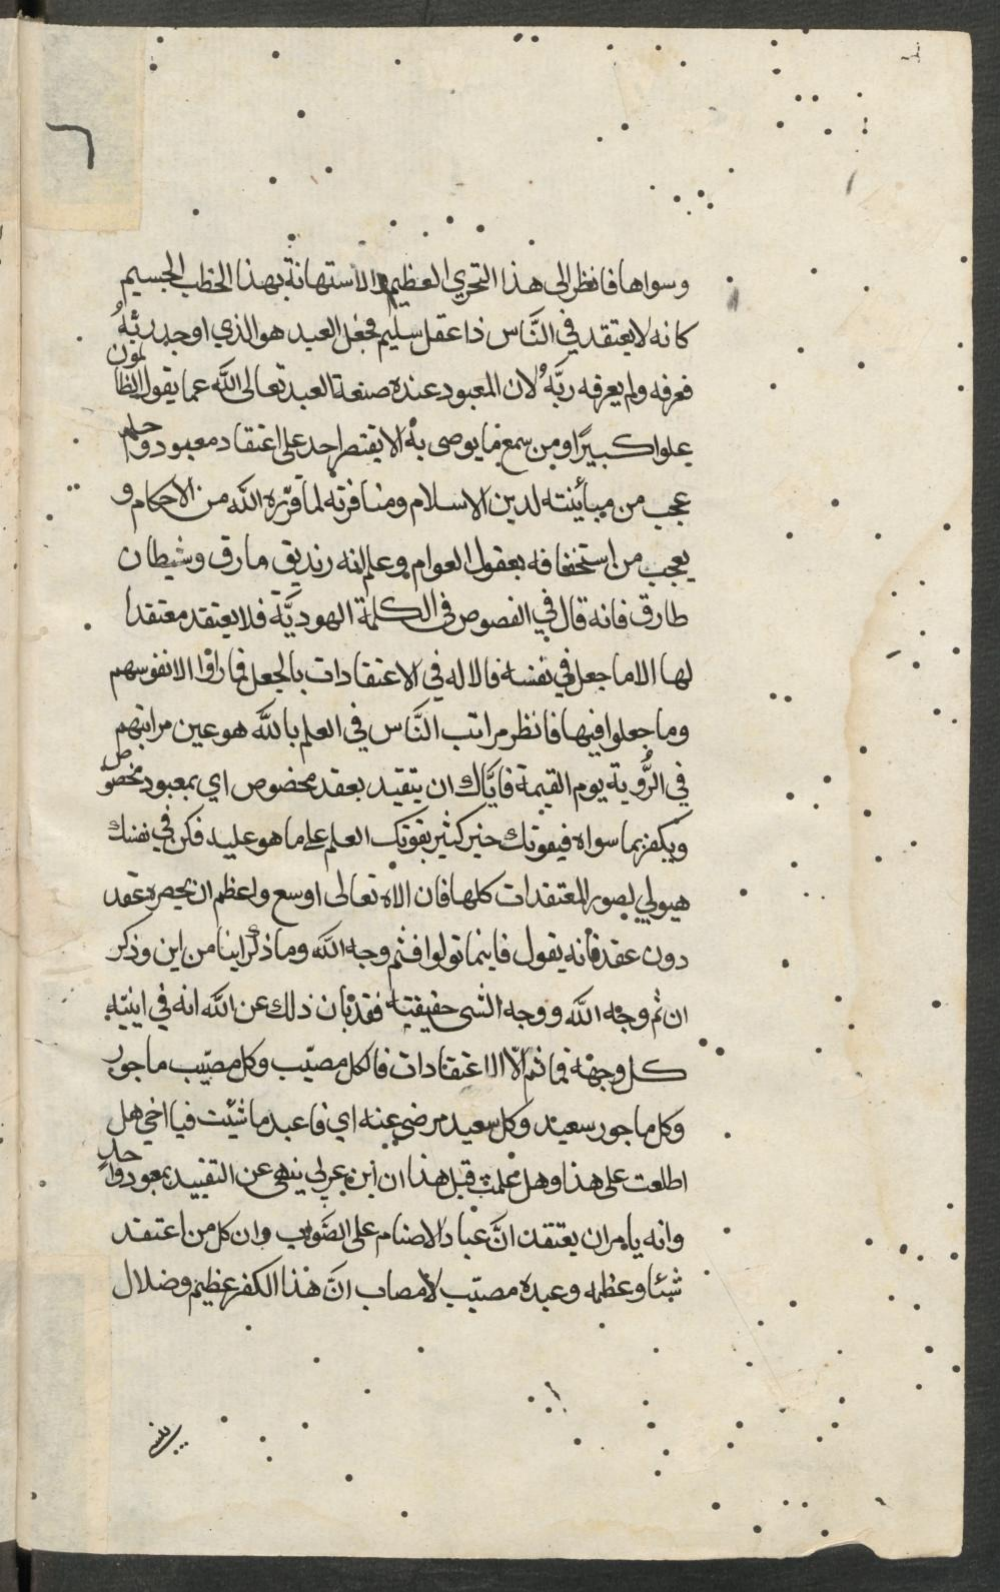 ٦
وسواها فانظر الى هذا التحري العظيم والاستهانة بهذا الخطب الجسيم
كانه لا يعتقد في النَّاس ذا عقل سليم فجعل العبد هو الذي اوجد ربَّهُ
فعرفه ولم يعرفه ربَّهُ لان المعبود عنده صنعة العبد تعالى الله عما يقول الظالمون
علوا كبيرًا ومن سمع ما يوصى به الا يقتصر احد على اعتقاد معبود واحد
عجب من مبأينته لدين الاسلام ومنافرته لما قرّره الله من الاحكام و
يعجب من استخفافه بعقول العوام وعلم انه زنديق مارق وشيطان
طارق فانه قال في الفصوص في الكلمة الهوديَّة فلا يعتقد معتقدا
لها الا ما جعل في نفسه فالاله في الاعتقادات بالجعل فما راوا الا نفوسهم
وما جعلوا فيها فانظر مراتب النَّاس في العلم بالله هو عين مراتبهم
في الرُّوية يوم القيمة فايَّاك ان يتقيد بعقد مخصوص اي بمعبود مخصوص
ويكفر بما سواه فيفوتك خير كثير يفوتك العلم على ما هو عليه فكن في نفسك
هيولي لصور المعتقدات كلها فان الاله تعالى اوسع واعظم ان يحصره عقد
دون عقد فانه يقول فاينما تولوا فثم وجه الله وما ذكر اينا من اين وذكر
ان ثم وجه الله ووجه الشى حقيقته فقد بان ذلك عن الله انه في اينيّه
كل وجهة فما ثم الّا الاعتقادات فالكل مصيّب وكل مصيّب ماجور
وكل ماجور سعيد وكل سعيد مرضي عنه اي فاعبد ما شئت فيا اخي هل
اطلعت على هذا وهل علمت قبل هذا ان ابن عربي ينهى عن التقييد بمعبود واحد
وانه يامر ان يعتقد انَّ عباد الاصنام على الصَّوب وان كل من اعتقد
شئا وعظمه وعبده مصيّب لامصاب انَّ هذا الكفر عظيم وضلال